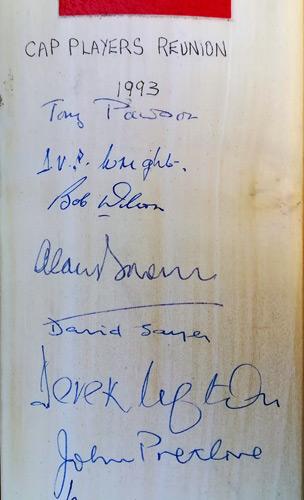 CAP PLAYERS REUNION
1993
Tony Pawson
Wright.
Bob Wilson
Alan
David Sayer
Derek Ufton
John Pretlove